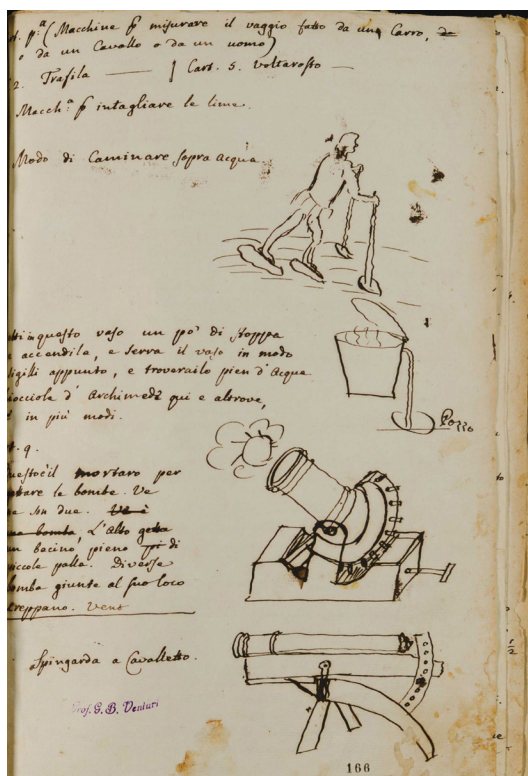 p.ª (Macchine p misurare il viaggio fatto da un Carro,
o da un Cavallo o da un uomo)
2. Trafila — Cart. 5. voltarosto —
Macch.ª p intagliare le lime.
Modo di Caminare sopra acqua.
in questo vaso un pò di stoppa
accendila, e serra il vaso in modo
sigilli appunto, e troverailo pien d'Acqua
chiocciole d'Archimede qui e altrove,
in più modi.
Pozzo
9.
questo è il mortaro per
le bombe. Ve
ne son due.
bomba, L'Alto getta
un bacino pieno di
piccole palle. Diverse
bomba giunte al suo loco
creppano. Vent
Spingarda a Cavalletto.
Prof. G. B. Venturi
166